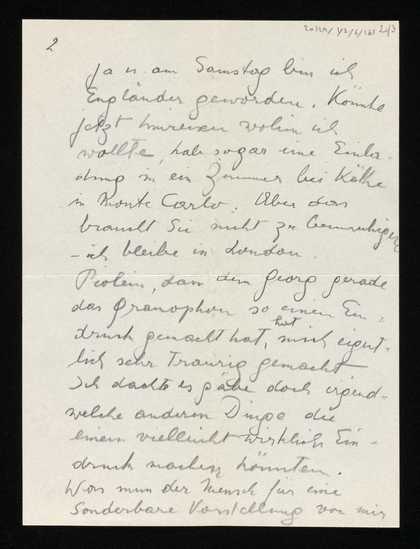 2
Ja u. am Samstag bin ich
Engländer geworden. Könnte
jetzt hinreisen wohin ich
wollte, hab sogar eine Einla-
dung in ein Zimmer bei Käthe
in Monte Carlo. Aber das
braucht Sie nicht zu beunruhigen
- ich bleibe in London.
dass dem Georg gerade
das Gramophon so einen Ein-
druck gemacht hat, hat mich eigent-
lich sehr traurig gemacht
Ich dachte es gäbe doch irgend-
welche anderen Dinge die
einem vielleicht wirklich Ein-
druck machen könnten.
Was nun der Mensch für eine
Sonderbare Vorstellung von mir